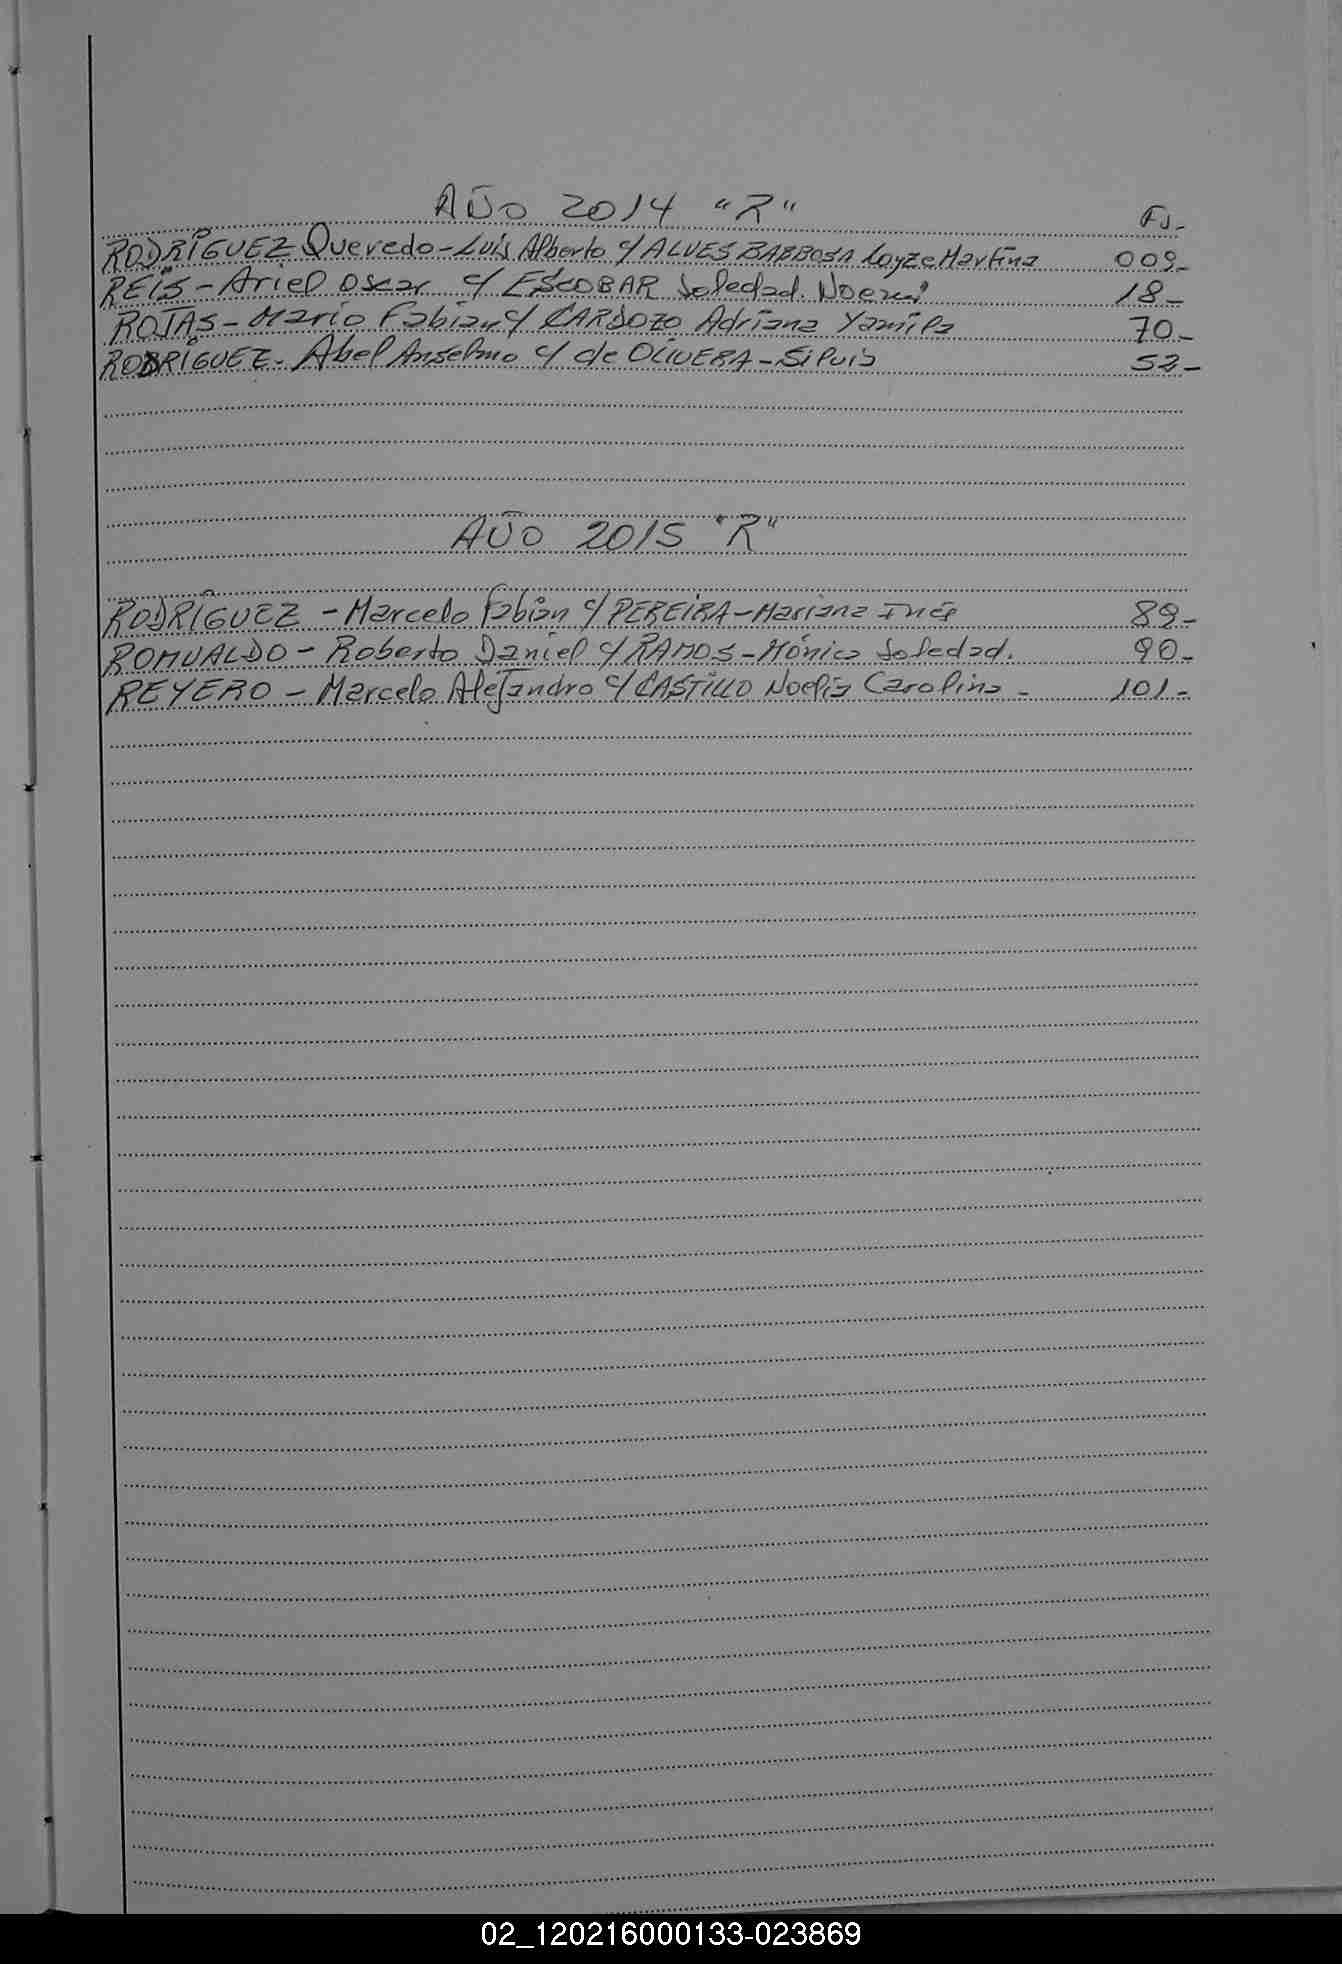 AÑO 2014 "R"
FJ-
RODRÍGUEZ Quevedo - Luis Alberto c/ ALVES BARBOSA Loyze Martina 009-
REIS - Ariel Oscar c/ ESCOBAR Soledad. Noemí 18-
ROJAS - Mario Fabian c/ CARDOZO Adriana Yamila 70-
RODRÍGUEZ - Abel Anselmo c/ de OLIVERA - 52-
AÑO 2015 "R"
RODRÍGUEZ - Marcelo Fabián c/ PEREIRA - Mariana Inés 89-
ROMUALDO - Roberto Daniel c/ RAMOS - Mónica Soledad. 90-
REYERO - Marcelo Alejandro c/ CASTILLO Noelia Carolina - 101-
02_120216000133-023869